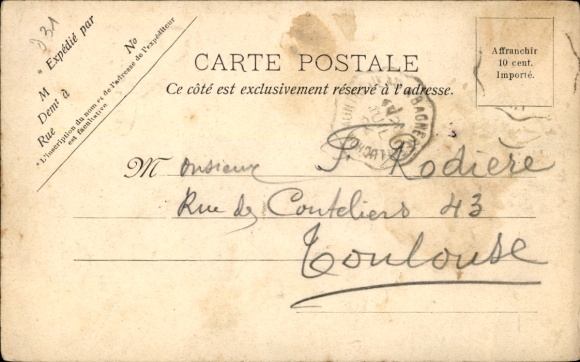 931
Expédié par
No
M
Demt à
Rue
* L'inscription du nom et de l'adresse de l'expéditeur
est facultative
CARTE POSTALE
Ce côté est exclusivement réservé à l'adresse.
Affranchir
10 cent.
Importé.
BAGNE
Monsieur F. Rodière
Rue des Couteliers 43
Toulouse